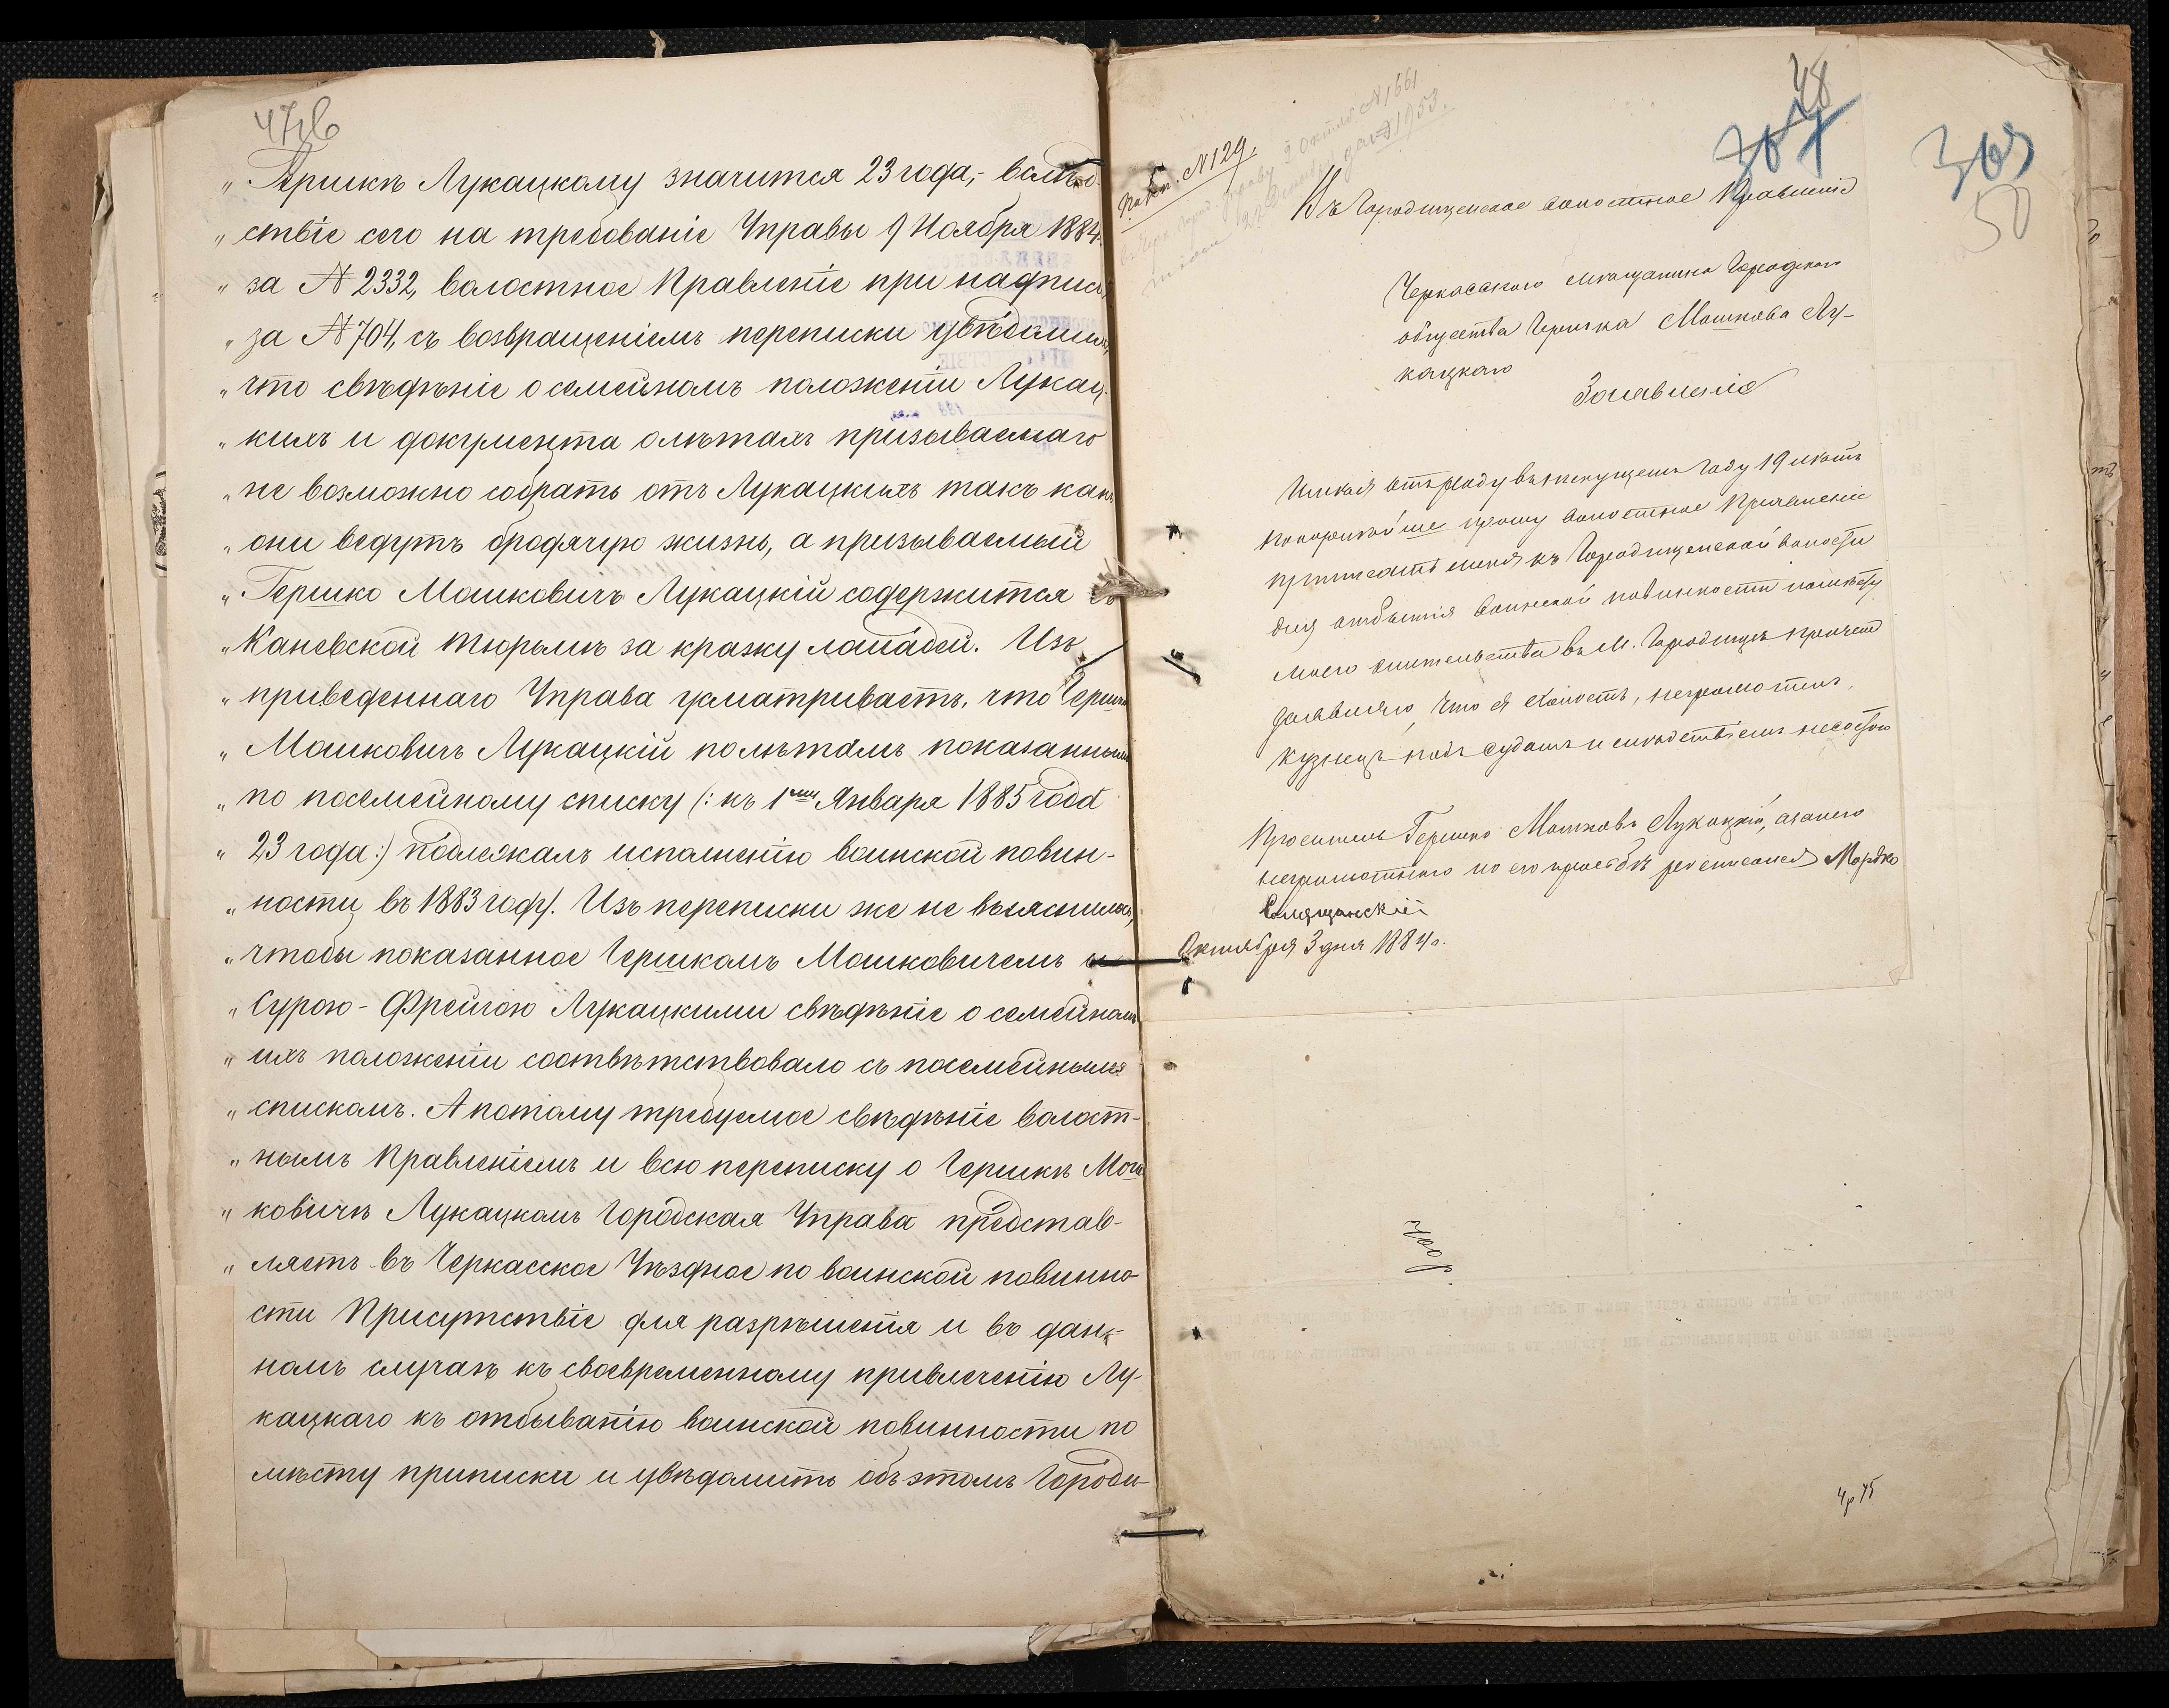 47об
„Гершкѣ Лукацкому значится 23 года,- вслѣд-
„ствіе сего на требованіе Управы 9 Ноября 1884
„за № 2332, волостное Правленіе при надписи
„за № 704, съ возвращеніемъ переписки увѣдомило,
„что свѣдѣніе о семейномъ положеніи Лукац-
„кихъ и документа о лѣтахъ призываемаго
„не возможно собрать отъ Лукацкихъ такъ какъ
„они ведутъ бродячую жизнь, а призываемый
„Гершко Мошковичъ Лукацкій содержится въ
„Каневской тюрьмѣ за кражу лошадей. Изъ
„приведеннаго Управа усматриваетъ, что Гершко
„Мошковичъ Лукацкій по лѣтамъ показаннымъ
„по посемейному списку (: къ 1му Января 1885 года
„23 года :) подлежалъ исполненію воинской повин-
„ности въ 1883 году. Изъ переписки же не выяснилось,
„чтобы показанное Гершкомъ Мошковичемъ и
„Сурою-Фрейгою Лукацкими свѣдѣніе о семейномъ
„ихъ положеніи соотвѣтствовало съ посемейнымъ
„спискомъ. А потому требуемое свѣдѣніе волост-
„нымъ Правленіемъ и всю переписку о Гершкѣ Мош-
„ковичѣ Лукацкомъ Городская Управа представ-
„ляетъ въ Черкасское Уѣздное по воинской повинно-
сти Присутствіе для разрѣшенія и въ дан-
номъ случаѣ къ своевременному привлеченію Лу-
кацкаго къ отбыванію воинской повинности по
мѣсту приписки и увѣдомить объ этомъ Городи-
48
307
309
50
№ 129.
№ 1661
№ 1953.
Въ Городищенское волостное Правленіе
Черкасскаго мѣщанина Городского
общества Гершка Мошкова Лу-
кацкаго
Заявленіе
Имѣя отъ роду въ текущемъ году 19 лѣтъ
покорнѣйше прошу волостное Правленіе
приписать меня къ Городищенской волости
для отбытія воинской повинности по мѣсту
моего жительства въ М. Городищѣ причемъ
заявляю, что я холостъ, неграмотенъ,
кузнецъ подъ судомъ и слѣдствіемъ не состою
Проситель Гершко Мошковъ Лукацкій, а за него
неграмотнаго по его просьбѣ росписался Мордко
Октября 3 дня 1884 г.